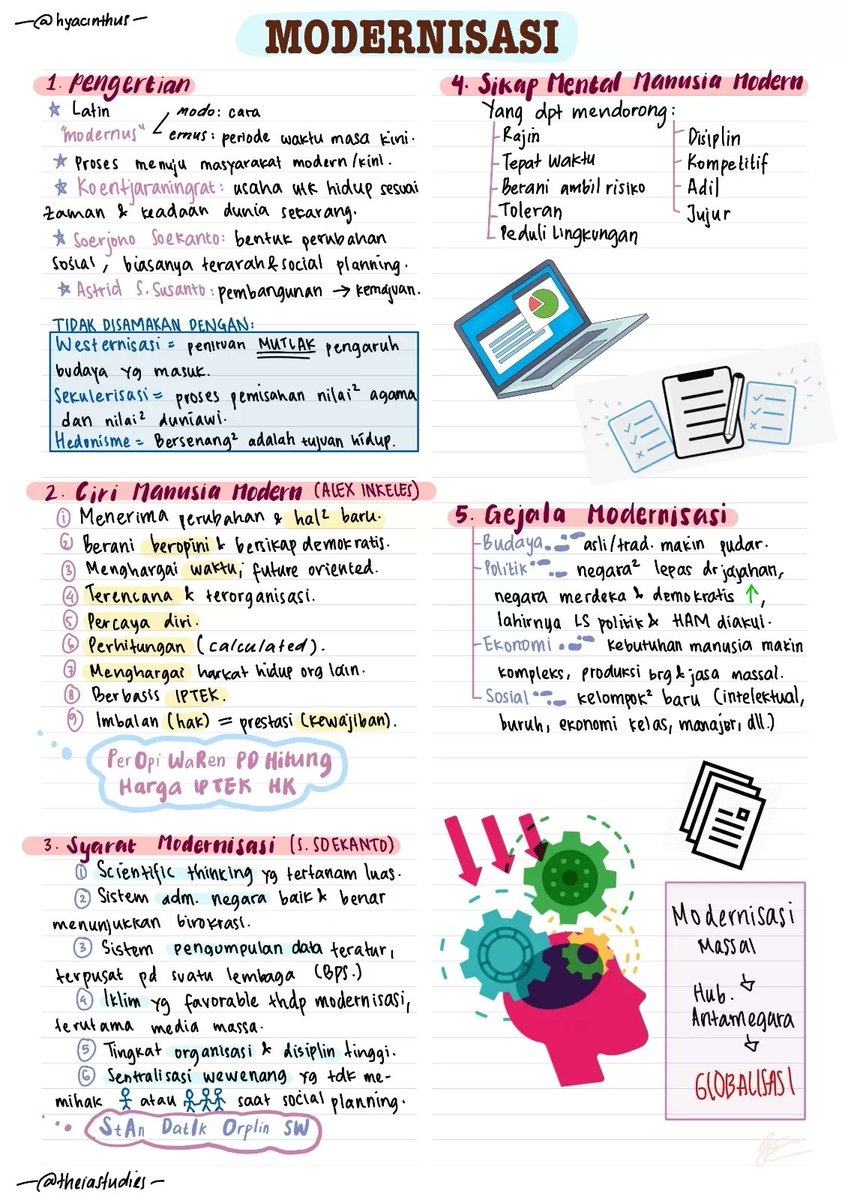 —@hyacinthus—
MODERNISASI
1. Pengertian
Latin
"modernus"
modo: cara
ernus: periode waktu masa kini.
Proses menuju masyarakat modern/kini.
Koentjaraningrat: usaha utk hidup sesuai
zaman & keadaan dunia sekarang.
Soerjono Soekanto: bentuk perubahan
sosial, biasanya terarah & social planning.
Astrid S. Susanto: pembangunan → kemajuan.
TIDAK DISAMAKAN DENGAN:
Westernisasi = peniruan MUTLAK pengaruh
budaya yg masuk.
Sekulerisasi = proses pemisahan nilai² agama
dan nilai² duniawi.
Hedonisme = Bersenang² adalah tujuan hidup.
2. Ciri Manusia Modern (ALEX INKELES)
① Menerima perubahan & hal² baru.
② Berani beropini & bersikap demokratis.
③ Menghargai waktu; future oriented.
④ Terencana & terorganisasi.
⑤ Percaya diri.
⑥ Perhitungan (calculated).
⑦ Menghargai harkat hidup org lain.
⑧ Berbasis IPTEK.
⑨ Imbalan (hak) = prestasi (kewajiban).
PerOpi WaRen PD Hitung
Harga IPTEK HK
3. Syarat Modernisasi (S. SOEKANTO)
① Scientific thinking yg tertanam luas.
② Sistem adm. negara baik & benar
menunjukkan birokrasi.
③ Sistem pengumpulan data teratur,
terpusat pd suatu lembaga (BPS.)
④ Iklim yg favorable thdp modernisasi,
terutama media massa.
⑤ Tingkat organisasi & disiplin tinggi.
⑥ Sentralisasi wewenang yg tdk me-
mihak atau saat social planning.
StAn DatIk Orplin SW
—@theiastudies—
4. Sikap Mental Manusia Modern
Yang dpt mendorong:
Rajin
Tepat Waktu
Berani ambil risiko
Toleran
Peduli lingkungan
Disiplin
Kompetitif
Adil
Jujur
5. Gejala Modernisasi
Budaya asli/trad. makin pudar.
Politik negara² lepas dr jajahan,
negara merdeka & demokratis ↑,
lahirnya LS politik & HAM diakui.
Ekonomi kebutuhan manusia makin
kompleks, produksi brg & jasa massal.
Sosial kelompok² baru (intelektual,
buruh, ekonomi kelas, manajer, dll.)
Modernisasi
Massal
↓
Hub.
Antarnegara
↓
GLOBALISASI